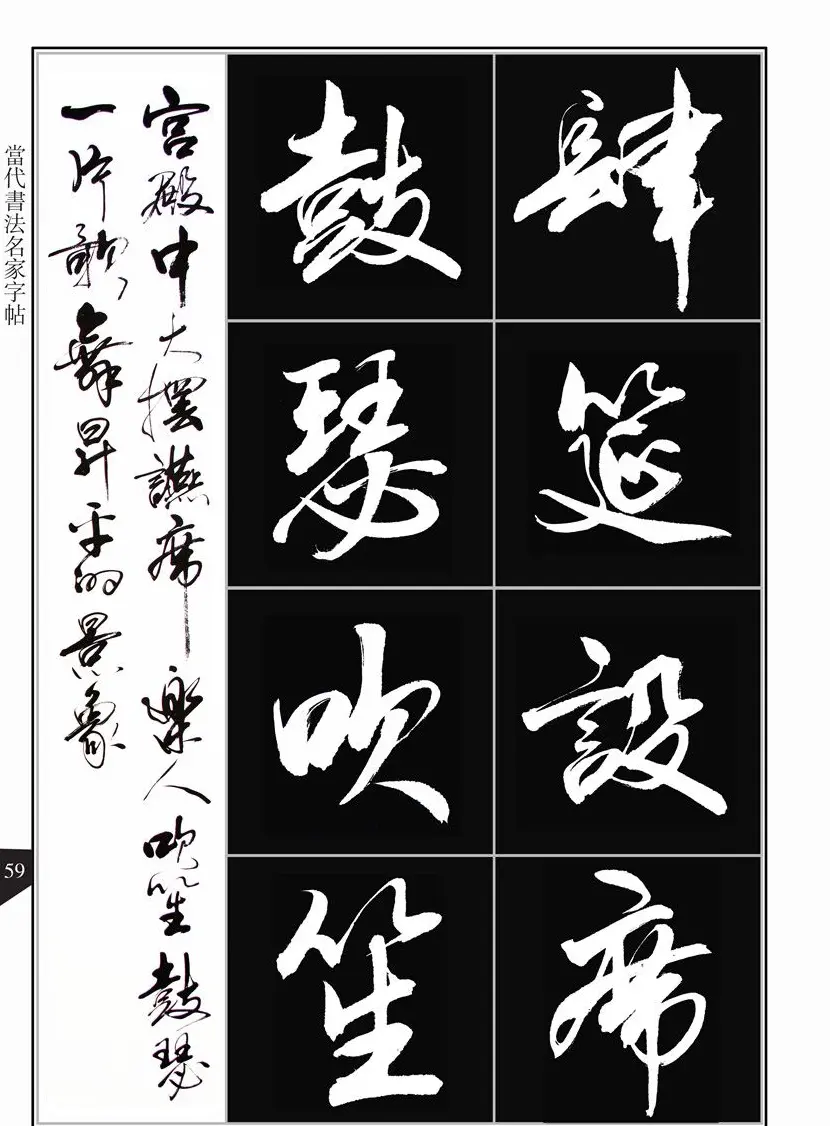 肆筵設席
鼓瑟吹笙
宮殿中大擺讌席樂人吹笙鼓瑟
一片歌舞昇平的景象
當代書法名家字帖
59